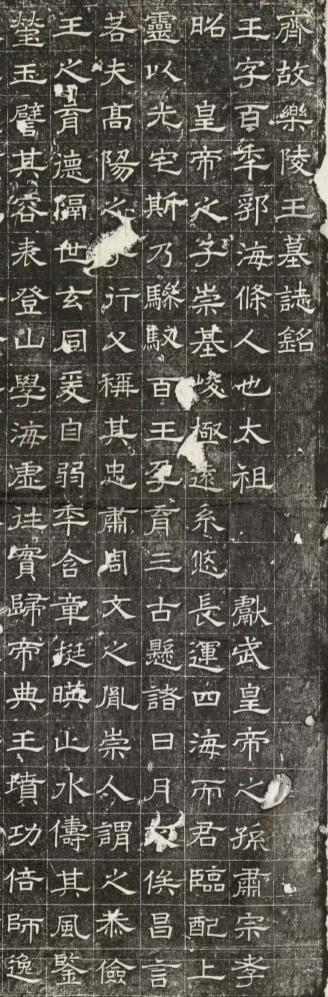 齊故樂陵王墓誌銘
王字百秊郭海條人也太祖 獻武皇帝之孫肅宗孝
昭 皇帝之子崇基峻極遠系悠長運四海而君臨配上
靈以光宅斯乃驂馭百王孕育三古懸諸日月 俟昌言
若夫髙陽之 行父稱其忠肅周文之胤崇人謂之恭儉
王之育德隔世玄同爰自弱秊含章挺暎止水儔其風鑒
瑩玉譬其容表登山學海虛往實歸帝典王墳功倍師逸